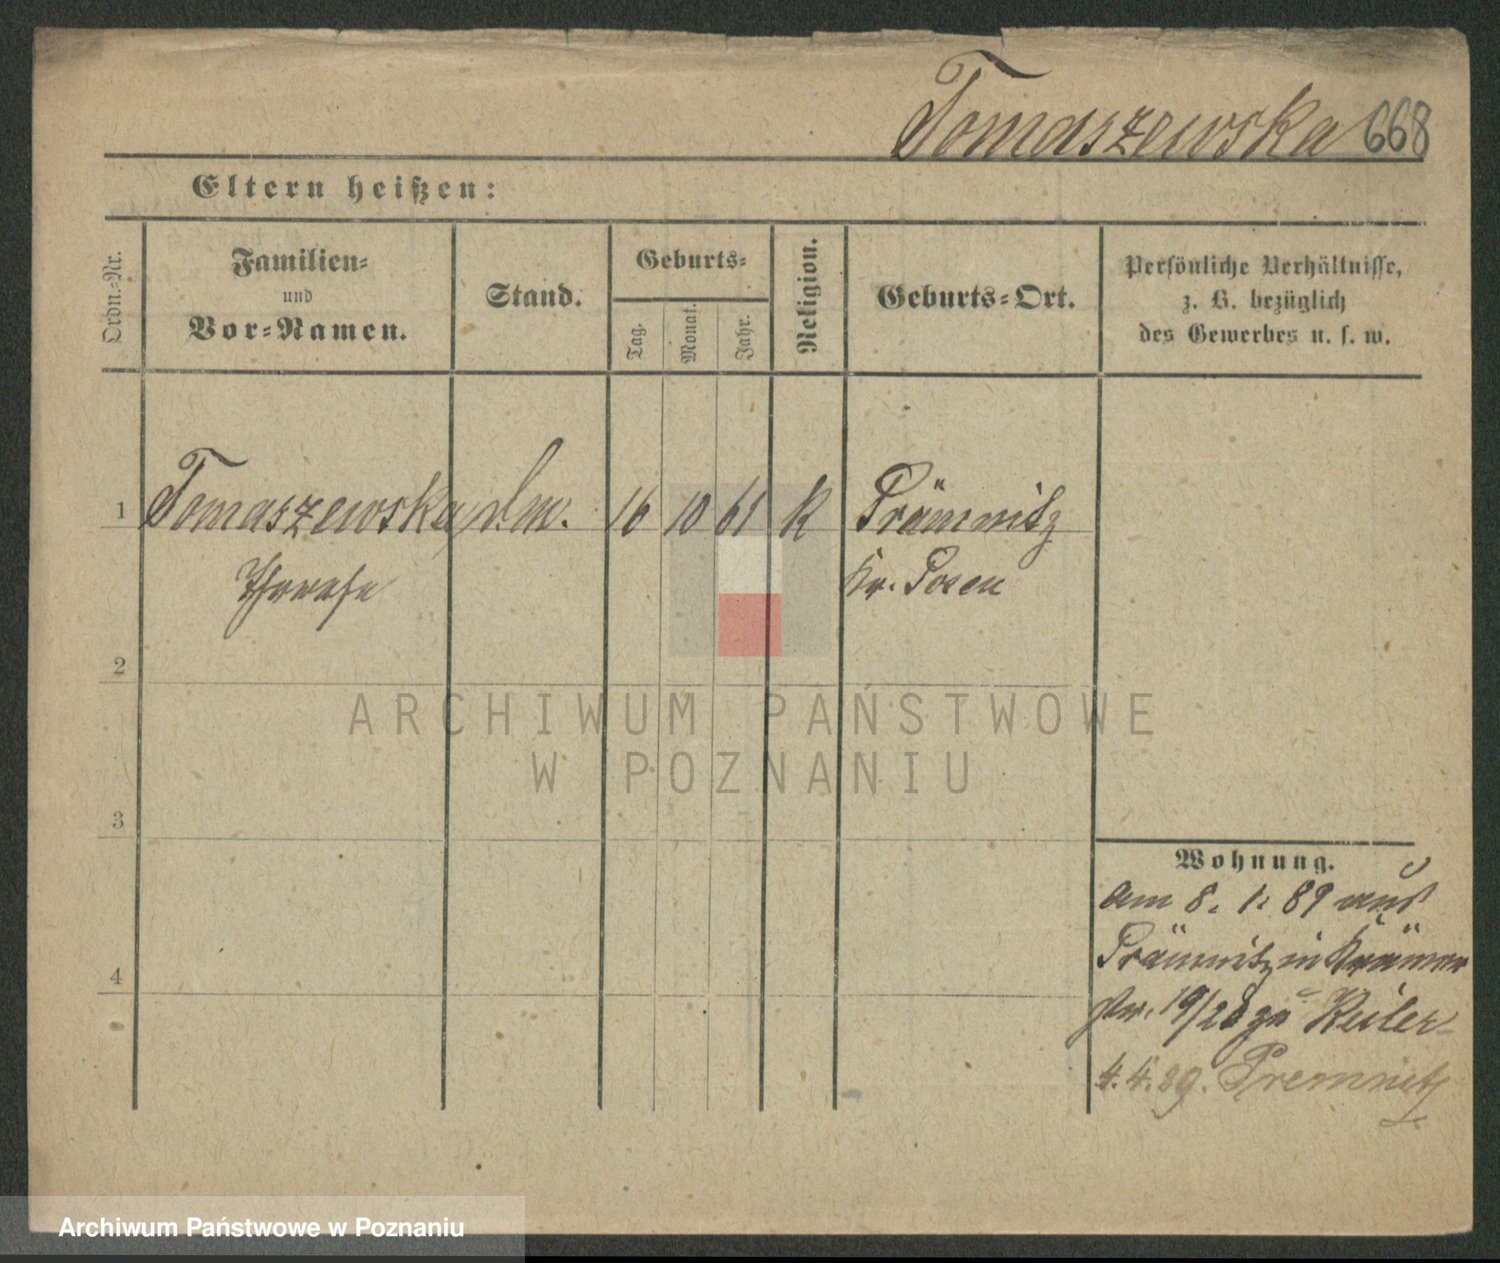 Tomaszewska 668
Eltern heißen:
Ordn.-Nr.
Familien-
und
Vor-Namen.
Stand.
Geburts-
Tag.
Monat.
Jahr.
Religion.
Geburts-Ort.
Persönliche Verhältnisse,
z. B. bezüglich
des Gewerbes u. s. w.
1 Tomaszewska 16 10 61 k Prämnitz
Therese Kr. Posen
2
3
4
Wohnung.
am 8. 1. 89 aus
Prämnitz in Krämer
str. 19/20 zu
4. 4. 89. Premnitz
ARCHIWUM PAŃSTWOWE
W POZNANIU
Archiwum Państwowe w Poznaniu